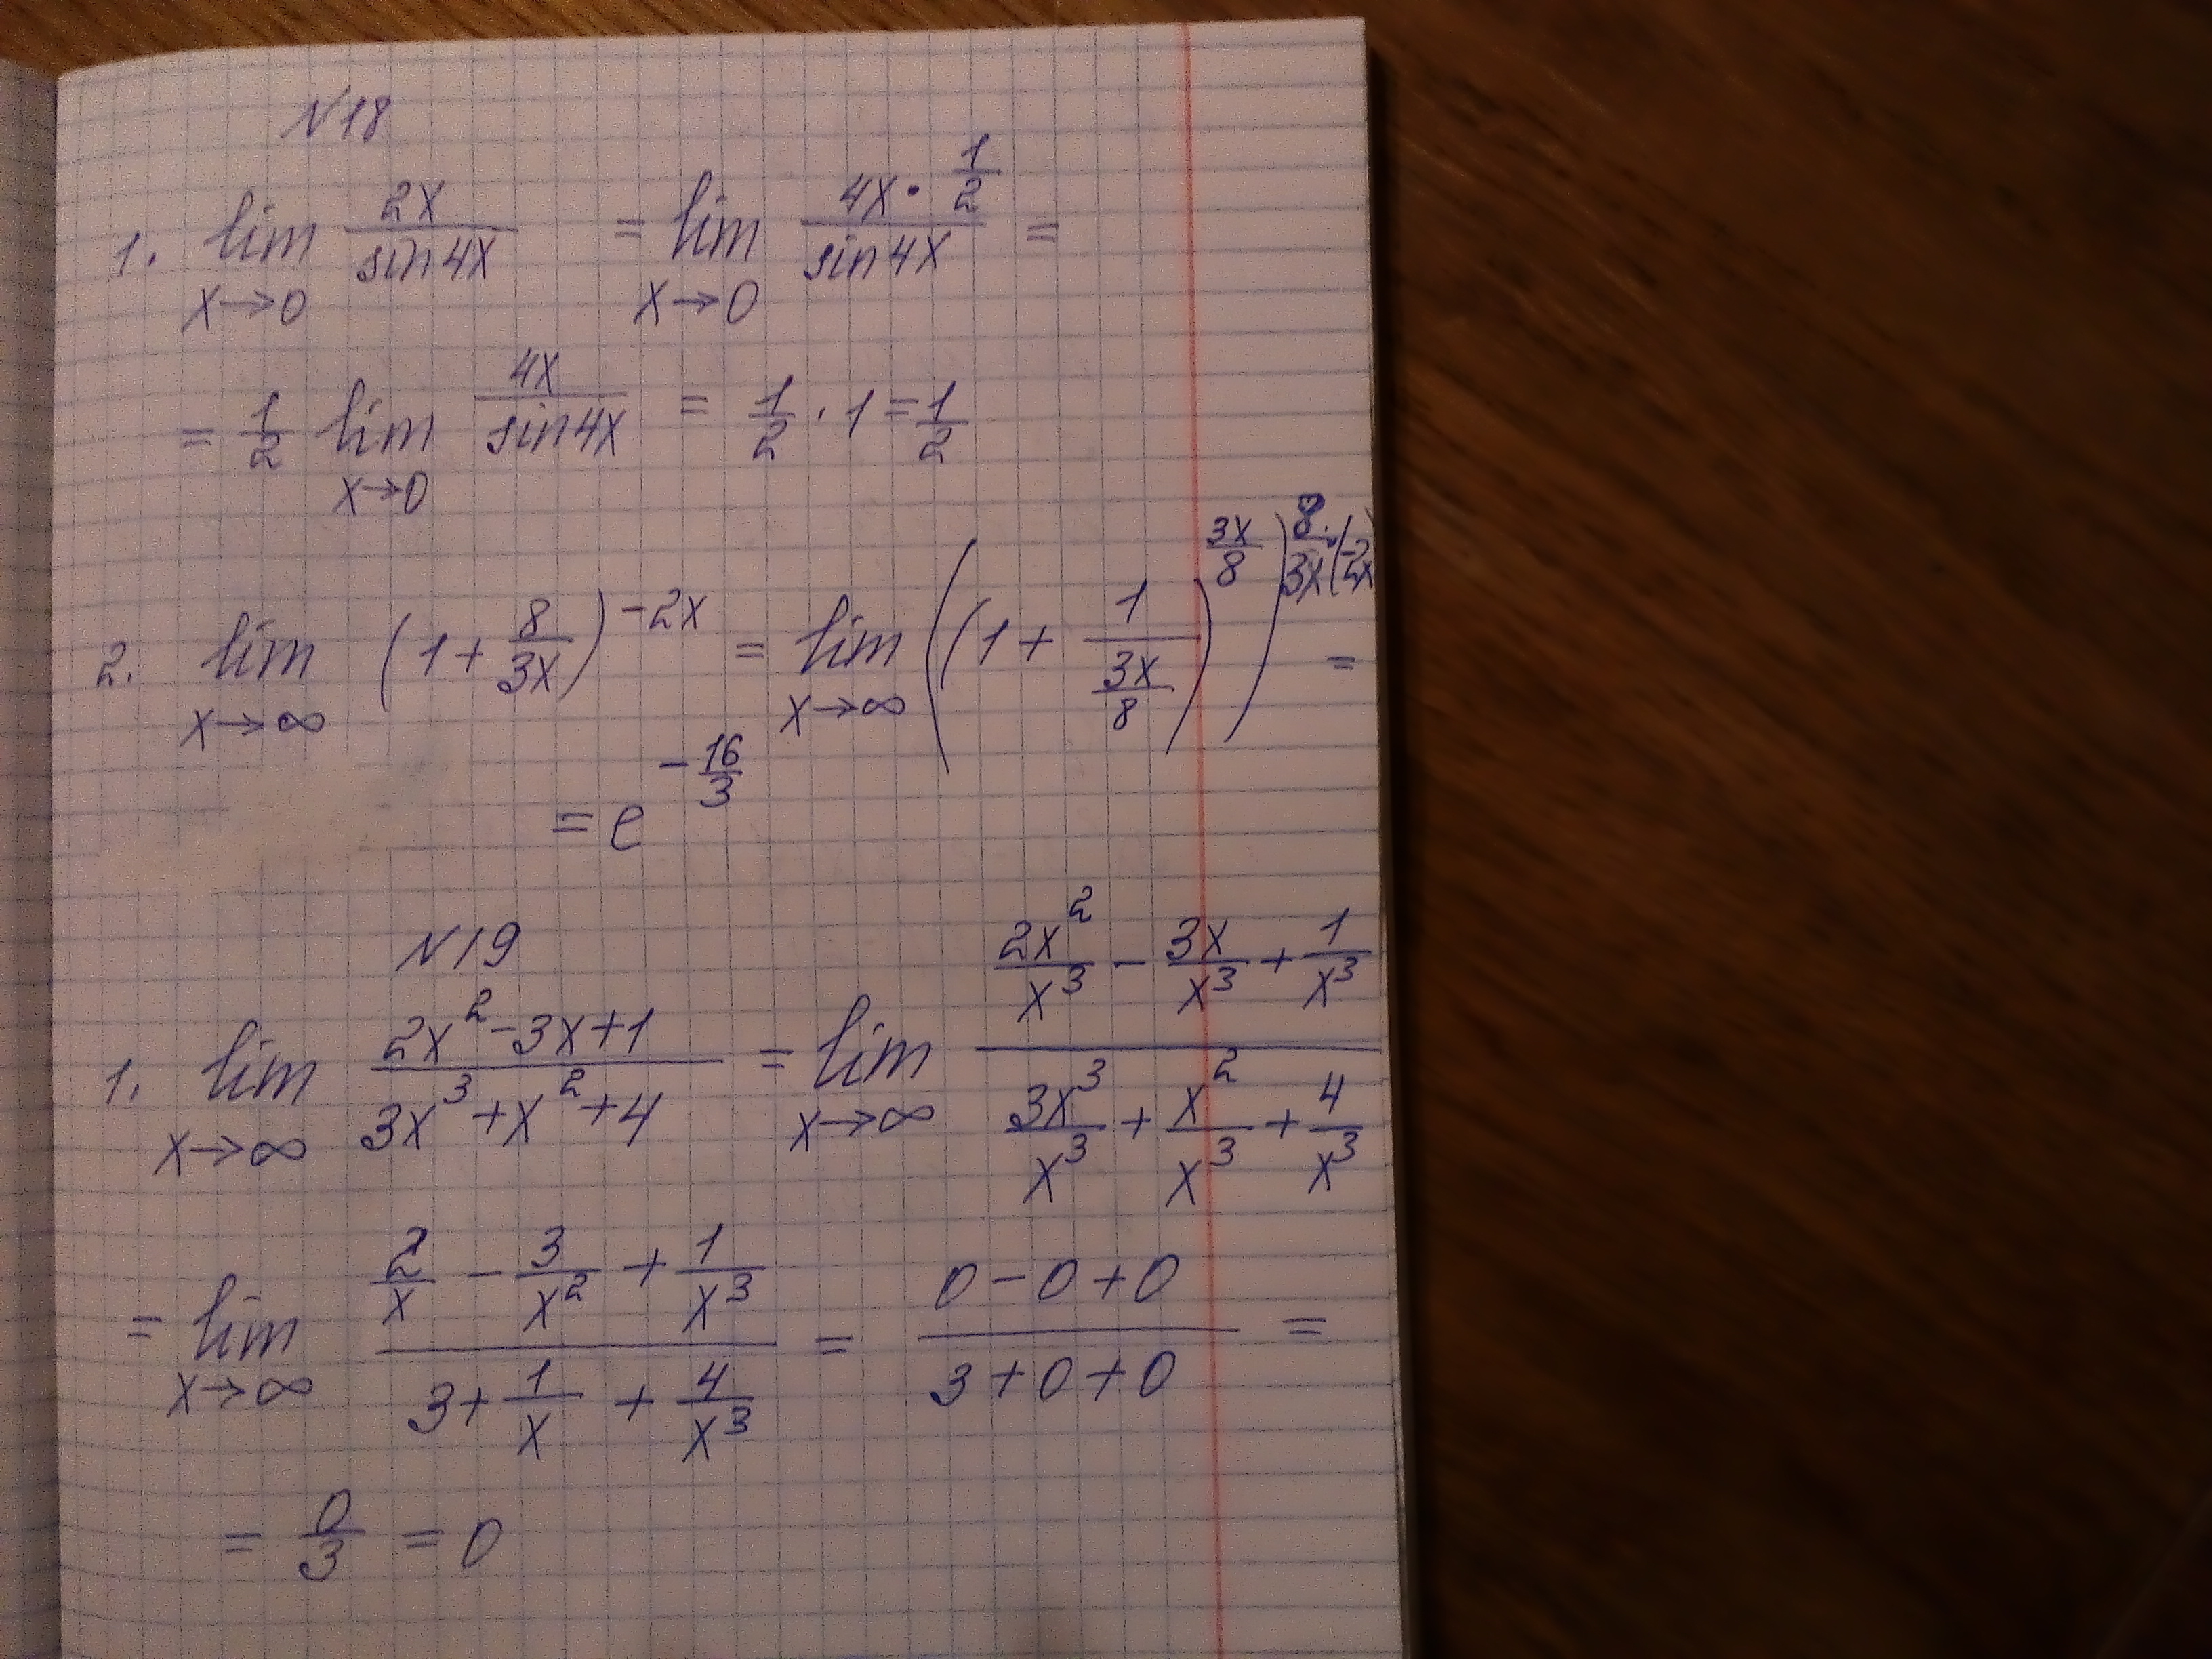 N18
1. lim_{x→0} \frac{2x}{sin4x} = lim_{x→0} \frac{4x · \frac{1}{2}}{sin4x} =
= \frac{1}{2} lim_{x→0} \frac{4x}{sin4x} = \frac{1}{2} · 1 = \frac{1}{2}
2. lim_{x→∞} (1 + \frac{8}{3x})^{-2x} = lim_{x→∞} ((1 + \frac{1}{\frac{3x}{8}})^{\frac{3x}{8}})^{\frac{8}{3x} · (-2x)} =
= e^{-\frac{16}{3}}
N19
1. lim_{x→∞} \frac{2x^2 - 3x + 1}{3x^3 + x^2 + 4} = lim_{x→∞} \frac{\frac{2x^2}{x^3} - \frac{3x}{x^3} + \frac{1}{x^3}}{\frac{3x^3}{x^3} + \frac{x^2}{x^3} + \frac{4}{x^3}}
= lim_{x→∞} \frac{\frac{2}{x} - \frac{3}{x^2} + \frac{1}{x^3}}{3 + \frac{1}{x} + \frac{4}{x^3}} = \frac{0 - 0 + 0}{3 + 0 + 0} =
= \frac{0}{3} = 0